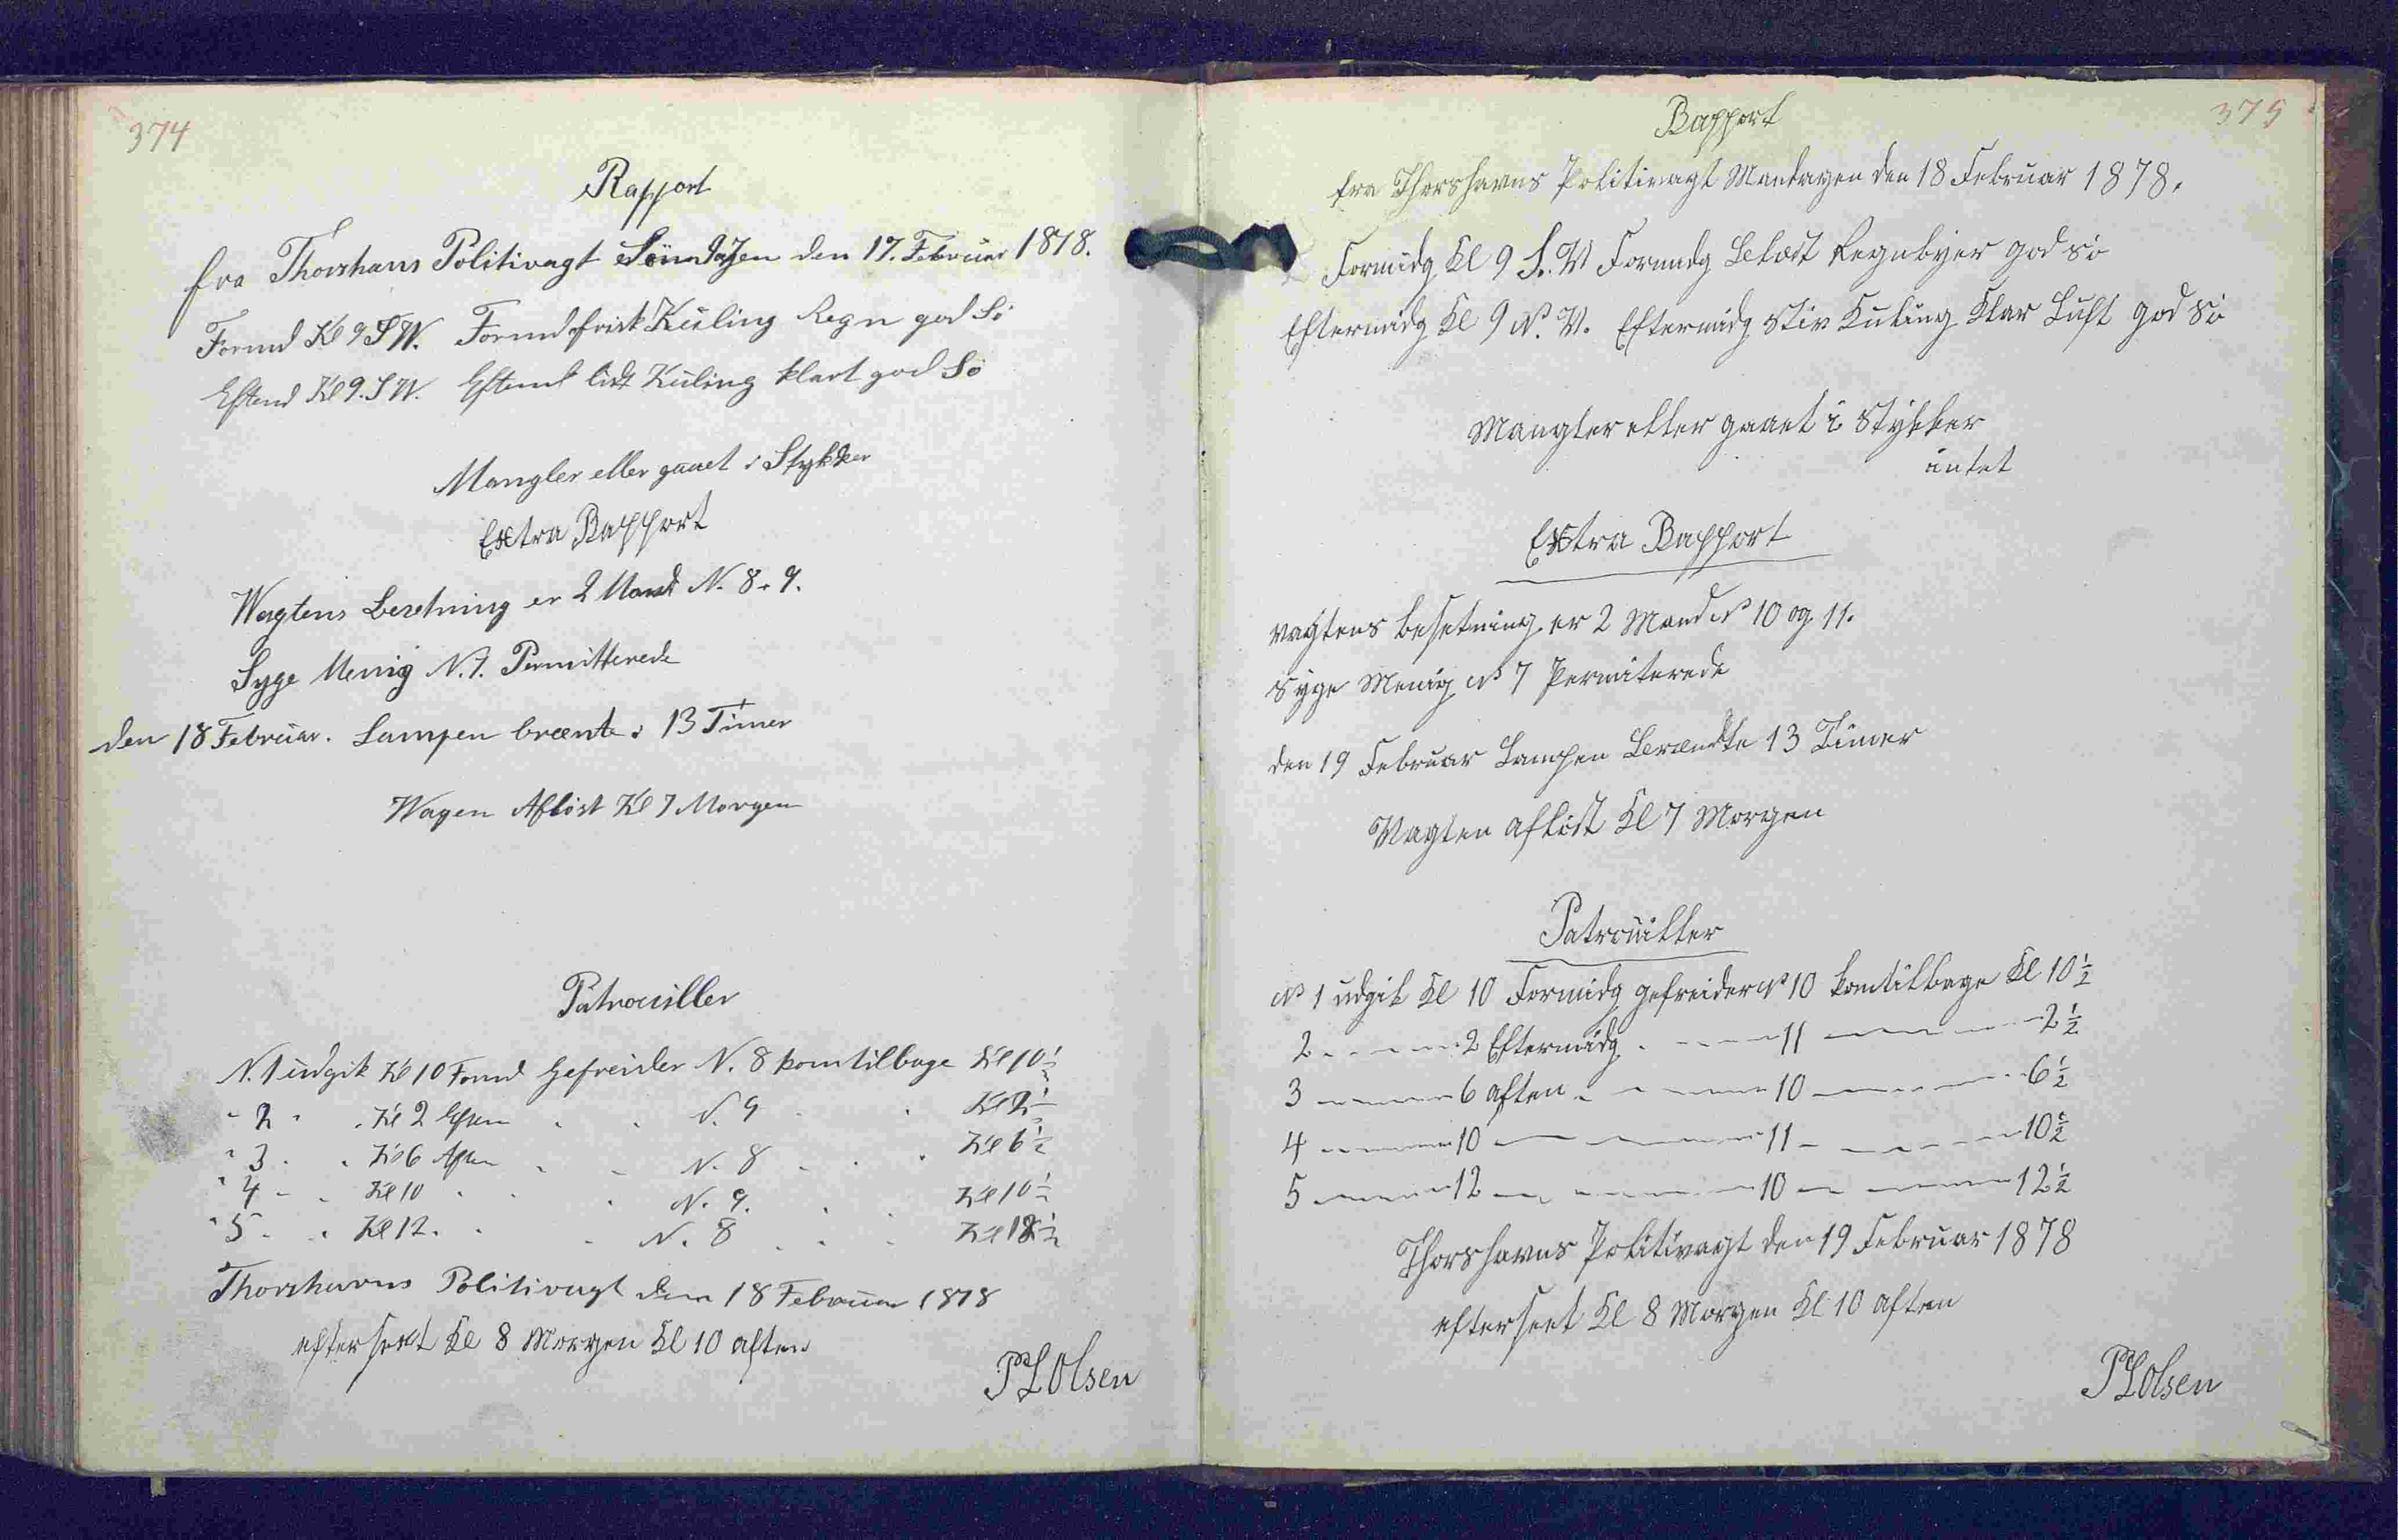 374
Rapport
fra Thorshavns Politivagt Söndagen den 17. Februar 1878.
Formd Kl 9 S W. Formd frisk Kuling Regn god Sö
Eftmd Kl 9. S W. Eftmd lidt Kuling klart god Sö
Mangler eller gaaet i Stykker
Extra Rapport
Wagtens Besetning er 2 Mand N. 8 . 9.
Syge Menig N. 7. Permitterede
den 18 Februar. Lampen brænte i 13 Timer
Wagen Aflöst Kl 7 Morgen
Patrouiller
N. 1 udgik Kl 10 Formd Gefreider N. 8 kom tilbage Kl 10½
" 2 " . Kl 2 Eftm . . N. 9 . . Kl 2½
" 3 . . Kl 6 Aften . . N. 8 . . . Kl 6½
" 4 - . Kl 10 . . . N. 9. . . Kl 10½
" 5 . . Kl 12. . . N. 8 . . . Kl 12½
Thorshavns Politivagt den 18 Februar 1878
efterseet Kl 8 Morgen Kl 10 aften
P L Olsen
375
Rapport
fra Thorshavns Politivagt Mandagen den 18 Februar 1878.
Formidg Kl 9 S. V Formidg Blæst Regnbyer god Sö
Eftermidg Kl 9 N. V. Eftermidg Stiv Kuling Klar Luft god Sö
Mangler eller gaaet i Stykker
intet
Extra Rapport
vagtens besetning er 2 Mand No 10 og 11.
Syge Menig No 7 Permiterede
den 19 Februar Lampen Brændte 13 Timer
Vagten aflöst Kl 7 Morgen
Patrouiller
No 1 udgik Kl 10 Formidg gefreider No 10 kom tilbage Kl 10½
2 - - - - 2 Eftermidg . - - - 11 - - - - 2½
3 - - - - 6 aften - - - - 10 - - - - 6½
4 - - - - 10 - - - - 11 - - - - 10½
5 - - - - 12 - - - - 10 - - - - 12½
Thorshavns Politivagt den 19 Februar 1878
efterseet Kl 8 Morgen Kl 10 aften
P L Olsen